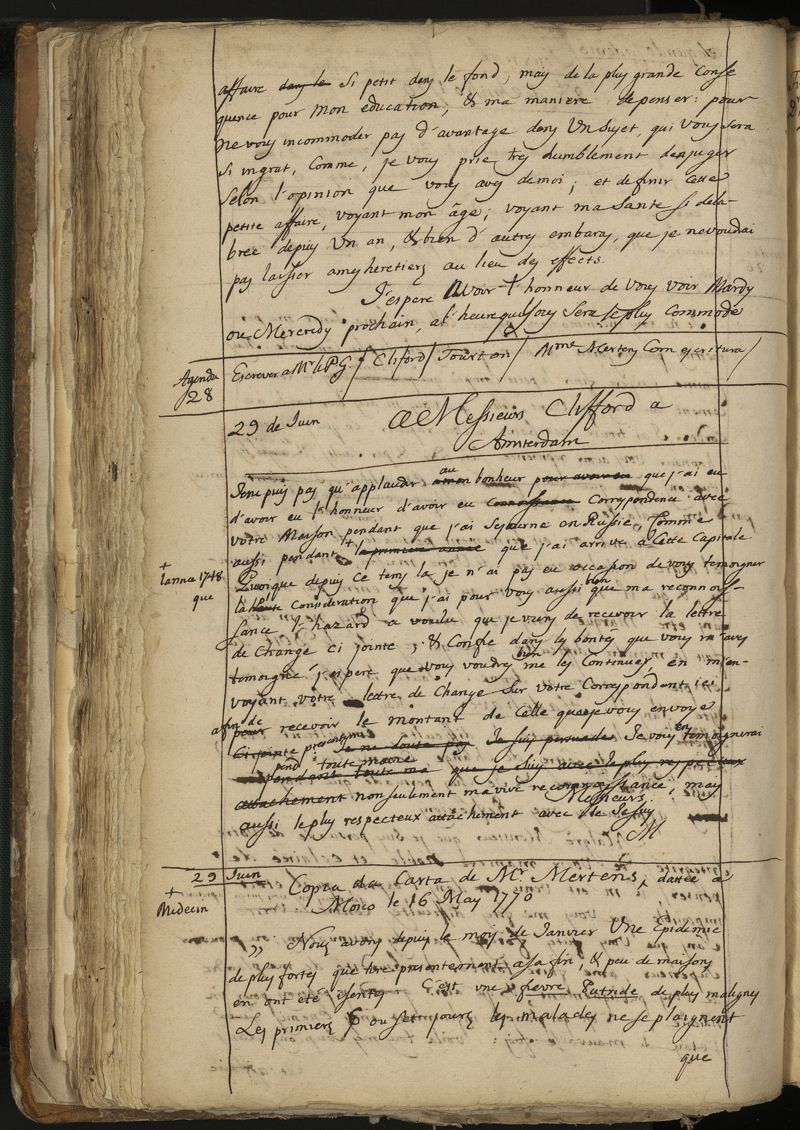 affaire dans le si petit dans le fond, mais de la plus grande conse
quence pour mon education, & ma maniere de penser: pour
ne vous incommoder pas d'avantage dans un sujet, qui vous sera
si ingrat, comme, je vous prie tres humblement d'en juger
selon l'opinion que vous aves de moi; et definir cette
petite affaire, voyant mon âge; voyant ma santé si dela-
breé depuis un an, & bien d'autres embaras, que je ne voudrai
pas laisser a mes heretiers au lieu des effects.
J'espere avoir l'honneur de vous voir Mardy
ou Mercredy prochain, a l'heure qui vous sera le plus commode
Agenda
28
Escrever a Mr. / Cliford / Tourton / Mme Mertens com escritura /
29 de Juin
A Messieurs Clifford a
Amsterdam
Je ne puis pas qu'applaudir au mon bonheur pour avoir eu que j'ai eu
d'avoir eu l'honneur d'avoir eu connoissance correspondence avec
votre Maison pendant que j'ai sejourné en Russie, comme
aussi pendant + la premiere année que j'ai arrivé a cette Capitale
+
l'anneé 1748
que
Quoique depuis ce tems la je n'ai pas eu occasion de vous temoigner
la haute consideration que j'ai pour vous aussi bien que ma reconnois-
sance, l'hazard a voulu que je viens de recevoir la lettre
de change ci jointe; & confié dans les bontés que vous m'aves
temoigné j'espere que vous voudres bien me les continuer, en m'en-
voyant votre lettre de Change sur votre Correspondent ici
afin de
pour recevoir le montant de celle que je vous envoye
ci jointe Je ne doute pas Je suis persuadé Je vous en temoignerai
pend toute ma vie
pendant toute ma que je suis avec le plus respectueux
attachement non seulement ma vive reconnoissance, mais
Messieurs.
aussi le plus respecteux attachement avec le
M
29 Juin
Copia da Carta de Mr. Mertens, dattée a
Mosco le 16 May 1770
+
Medecin
„ Nous avons depuis le mois de Janvier une Epidemie
de plus fortes que tire presentement a sa fin, & peu de maisons
en ont été isentes C'est une fievre Putride de plus malignes
Les premiers 6 ou sett jours les malades ne se plaignent
que